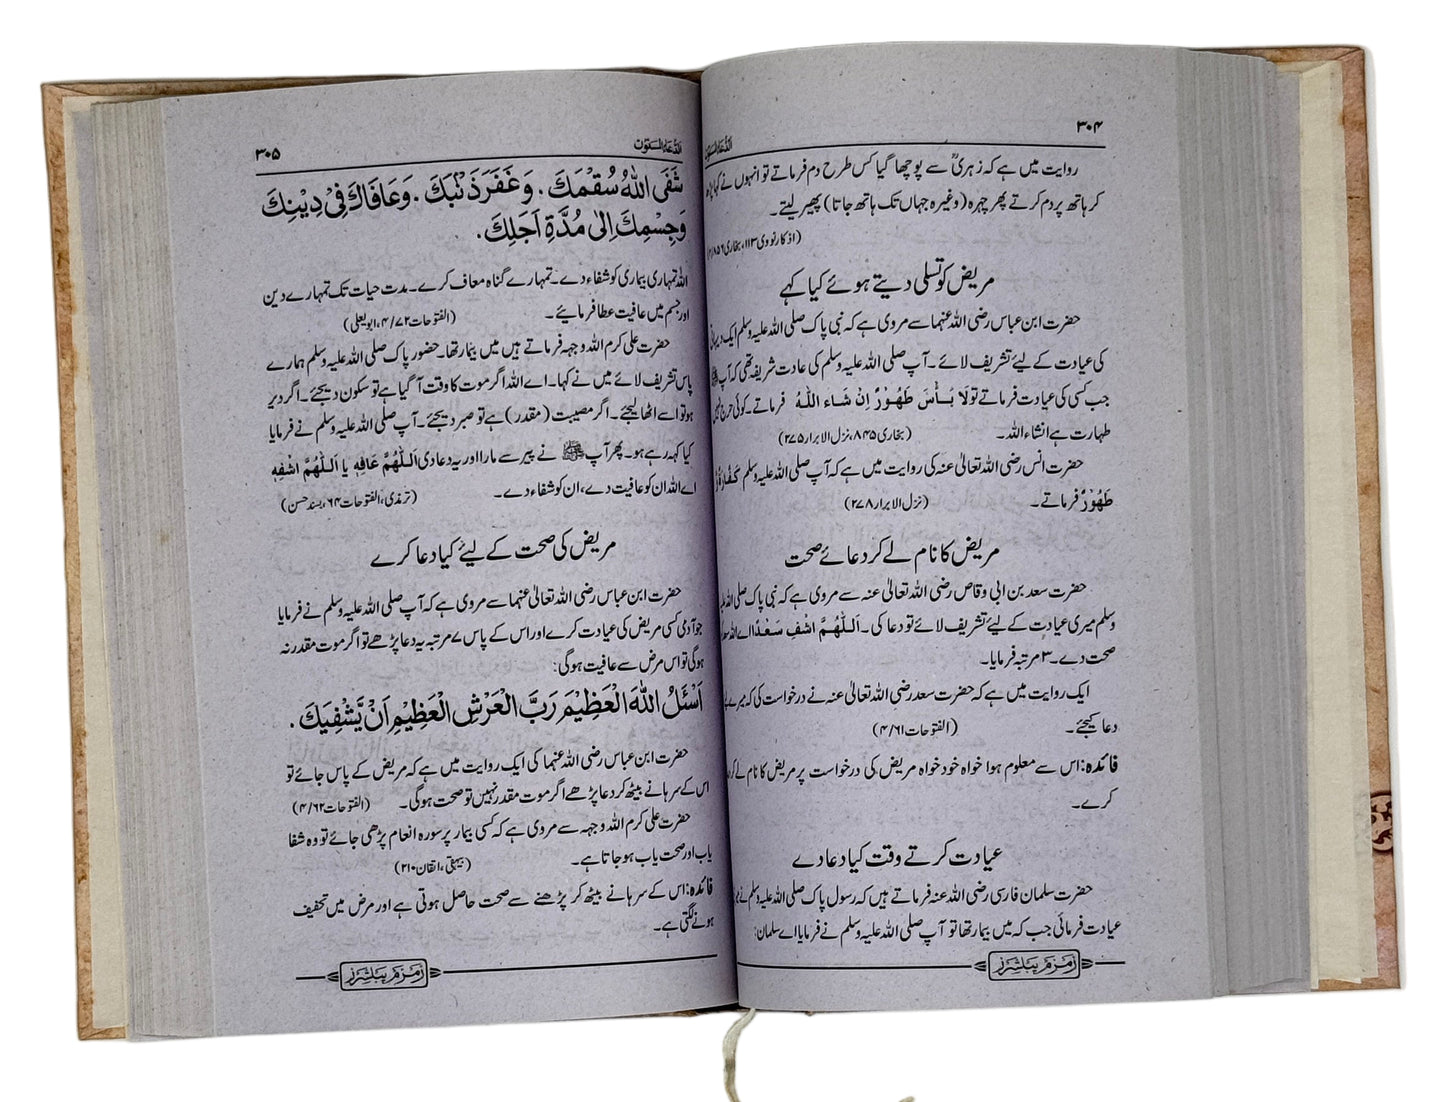 ۳۰۴
الدعاء المسنون
روایت میں ہے کہ زہریؒ سے پوچھا گیا کس طرح دم فرماتے تو انہوں نے کہا
کر ہاتھ پر دم کرتے پھر چہرہ (وغیرہ جہاں تک ہاتھ جاتا) پھیر لیتے۔
(اذکار نووی ۱۱۳، بخاری ۲/۸۵۶)
مریض کو تسلی دیتے ہوئے کیا کہے
حضرت ابن عباس رضی اللہ عنہما سے مروی ہے کہ نبی پاک صلی اللہ علیہ وسلم ایک دیہاتی
کی عیادت کے لیئے تشریف لائے۔ آپ صلی اللہ علیہ وسلم کی عادت شریفہ تھی کہ آپ ﷺ
جب کسی کی عیادت فرماتے تو لَا بَأْسَ طَهُوْرٌ اِنْ شَاءَ اللّٰهُ فرماتے۔ کوئی حرج نہیں
طہارت ہے انشاء اللہ۔ (بخاری ۸۴۵، نزل الابرار ۲۷۵)
حضرت انس رضی اللہ تعالیٰ عنہ کی روایت میں ہے کہ آپ صلی اللہ علیہ وسلم كَفَّارَةٌ
طَهُوْرٌ فرماتے۔ (نزل الابرار ۲۷۸)
مریض کا نام لے کر دعائے صحت
حضرت سعد بن ابی وقاص رضی اللہ تعالیٰ عنہ سے مروی ہے کہ نبی پاک صلی اللہ علیہ
وسلم میری عیادت کے لیئے تشریف لائے تو دعا کی۔ اَللّٰهُمَّ اشْفِ سَعْدًا اے اللہ سعد
صحت دے۔ ۳ مرتبہ فرمایا۔
ایک روایت میں ہے کہ حضرت سعد رضی اللہ تعالیٰ عنہ نے درخواست کی کہ میرے
دعا کیجئے۔ (الفتوحات ۴/۶۱)
فائدہ: اس سے معلوم ہوا خواہ خود خواہ مریض کی درخواست پر مریض کا نام لے کر
کرے۔
عیادت کرتے وقت کیا دعا دے
حضرت سلمان فارسی رضی اللہ عنہ فرماتے ہیں کہ رسول پاک صلی اللہ علیہ وسلم نے
عیادت فرمائی جب کہ میں بیمار تھا تو آپ صلی اللہ علیہ وسلم نے فرمایا اے سلمان:
زمزم پبلشرز
۳۰۵
الدعاء المسنون
شَفَى اللّٰهُ سُقْمَكَ. وَغَفَرَ ذَنْبَكَ. وَعَافَاكَ فِىْ دِيْنِكَ
وَجِسْمِكَ اِلٰى مُدَّةِ اَجَلِكَ.
اللہ تمہاری بیماری کو شفاء دے۔ تمہارے گناہ معاف کرے۔ مدت حیات تک تمہارے دین
اور جسم میں عافیت عطا فرمایئے۔ (الفتوحات ۴/۷۲، ابویعلی)
حضرت علی کرم اللہ وجہہ فرماتے ہیں میں بیمار تھا۔ حضور پاک صلی اللہ علیہ وسلم ہمارے
پاس تشریف لائے میں نے کہا۔ اے اللہ اگر موت کا وقت آگیا ہے تو سکون دیجئے۔ اگر دیر
ہو تو اسے اٹھا لیجئے۔ اگر مصیبت (مقدر) ہے تو صبر دیجئے۔ آپ صلی اللہ علیہ وسلم نے فرمایا
کیا کہہ رہے ہو۔ پھر آپ ﷺ نے پیر سے مارا اور یہ دعا دی اَللّٰهُمَّ عَافِهٖ يا اَللّٰهُمَّ اشْفِهٖ
اے اللہ ان کو عافیت دے، ان کو شفاء دے۔ (ترمذی، الفتوحات ۶۴، بسند حسن)
مریض کی صحت کے لیئے کیا دعا کرے
حضرت ابن عباس رضی اللہ تعالیٰ عنہما سے مروی ہے کہ آپ صلی اللہ علیہ وسلم نے فرمایا
جو آدمی کسی مریض کی عیادت کرے اور اس کے پاس ۷ مرتبہ یہ دعا پڑھے تو اگر موت مقدر نہ
ہوگی تو اس مرض سے عافیت ہوگی:
اَسْئَلُ اللّٰهَ الْعَظِيْمَ رَبَّ الْعَرْشِ الْعَظِيْمِ اَنْ يَّشْفِيَكَ.
حضرت ابن عباس رضی اللہ عنہما کی ایک روایت میں ہے کہ مریض کے پاس جائے تو
اس کے سرہانے بیٹھ کر دعا پڑھے اگر موت مقدر نہیں تو صحت ہوگی۔ (الفتوحات ۴/۶۲)
حضرت علی کرم اللہ وجہہ سے مروی ہے کہ کسی بیمار پر سورہ انعام پڑھی جائے تو وہ شفا
یاب اور صحت یاب ہو جاتا ہے۔ (بیہقی، اتقان ۲۱۰)
فائدہ: اس کے سرہانے بیٹھ کر پڑھنے سے صحت حاصل ہوتی ہے اور مرض میں تخفیف
ہونے لگتی ہے۔
زمزم پبلشرز